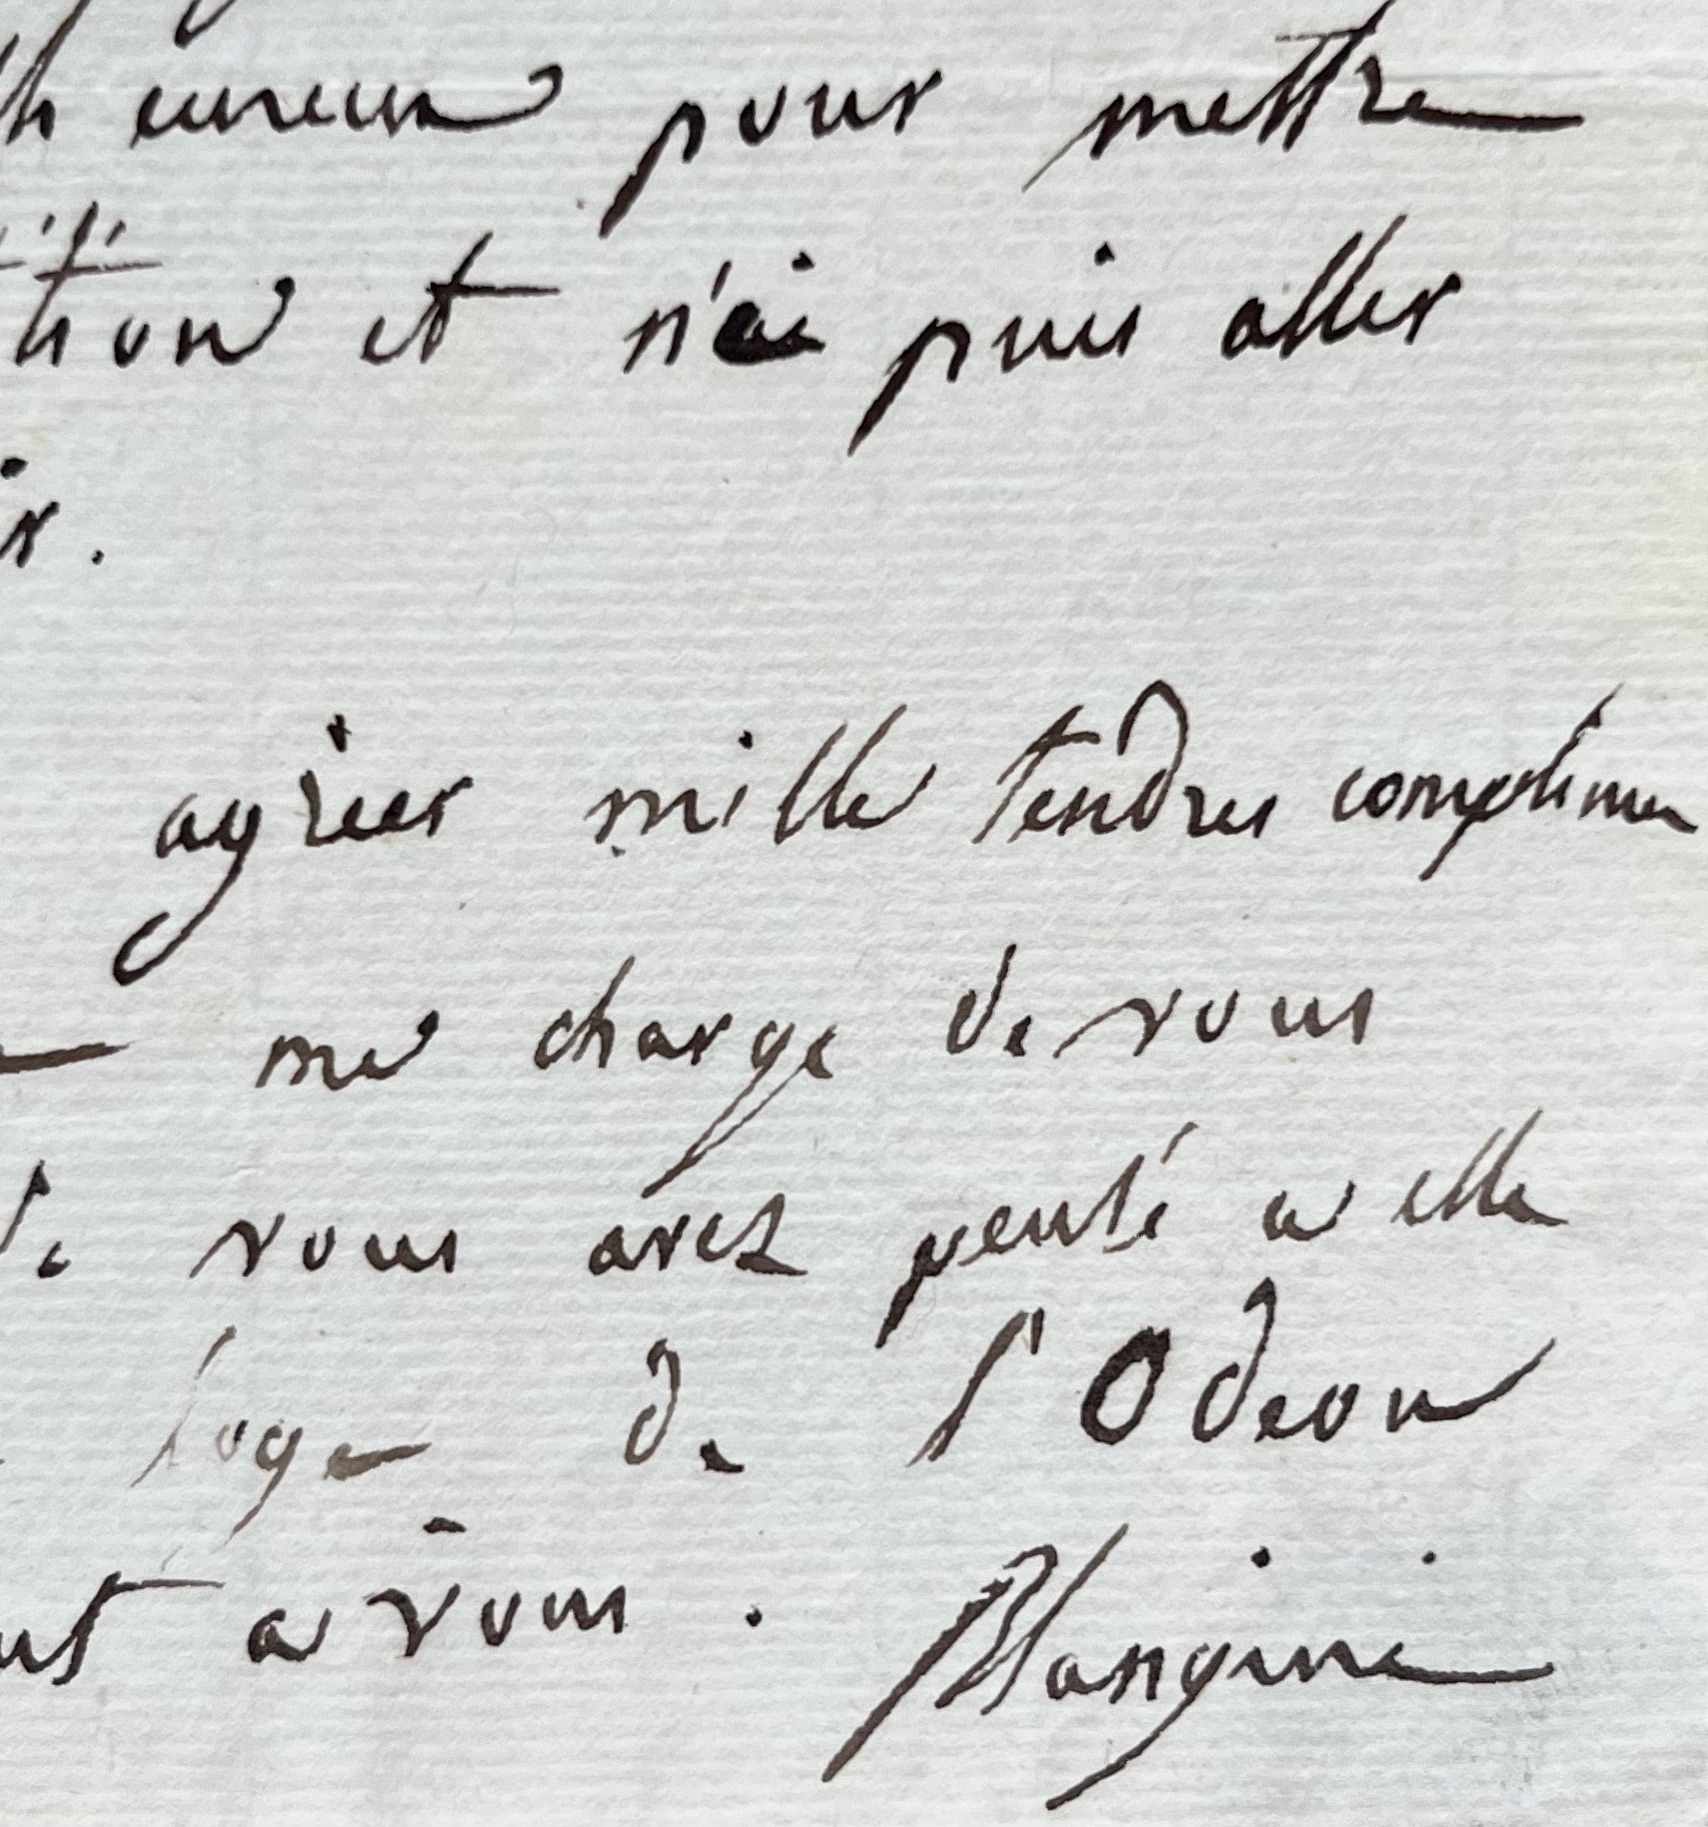 heureux pour mettre
tition et n'ai puis aller
ir.
agréer mille tendres complimen
me charge de vous
de vous avez pensé a elle
loge de l'Odeon
ut a vous. Blangini